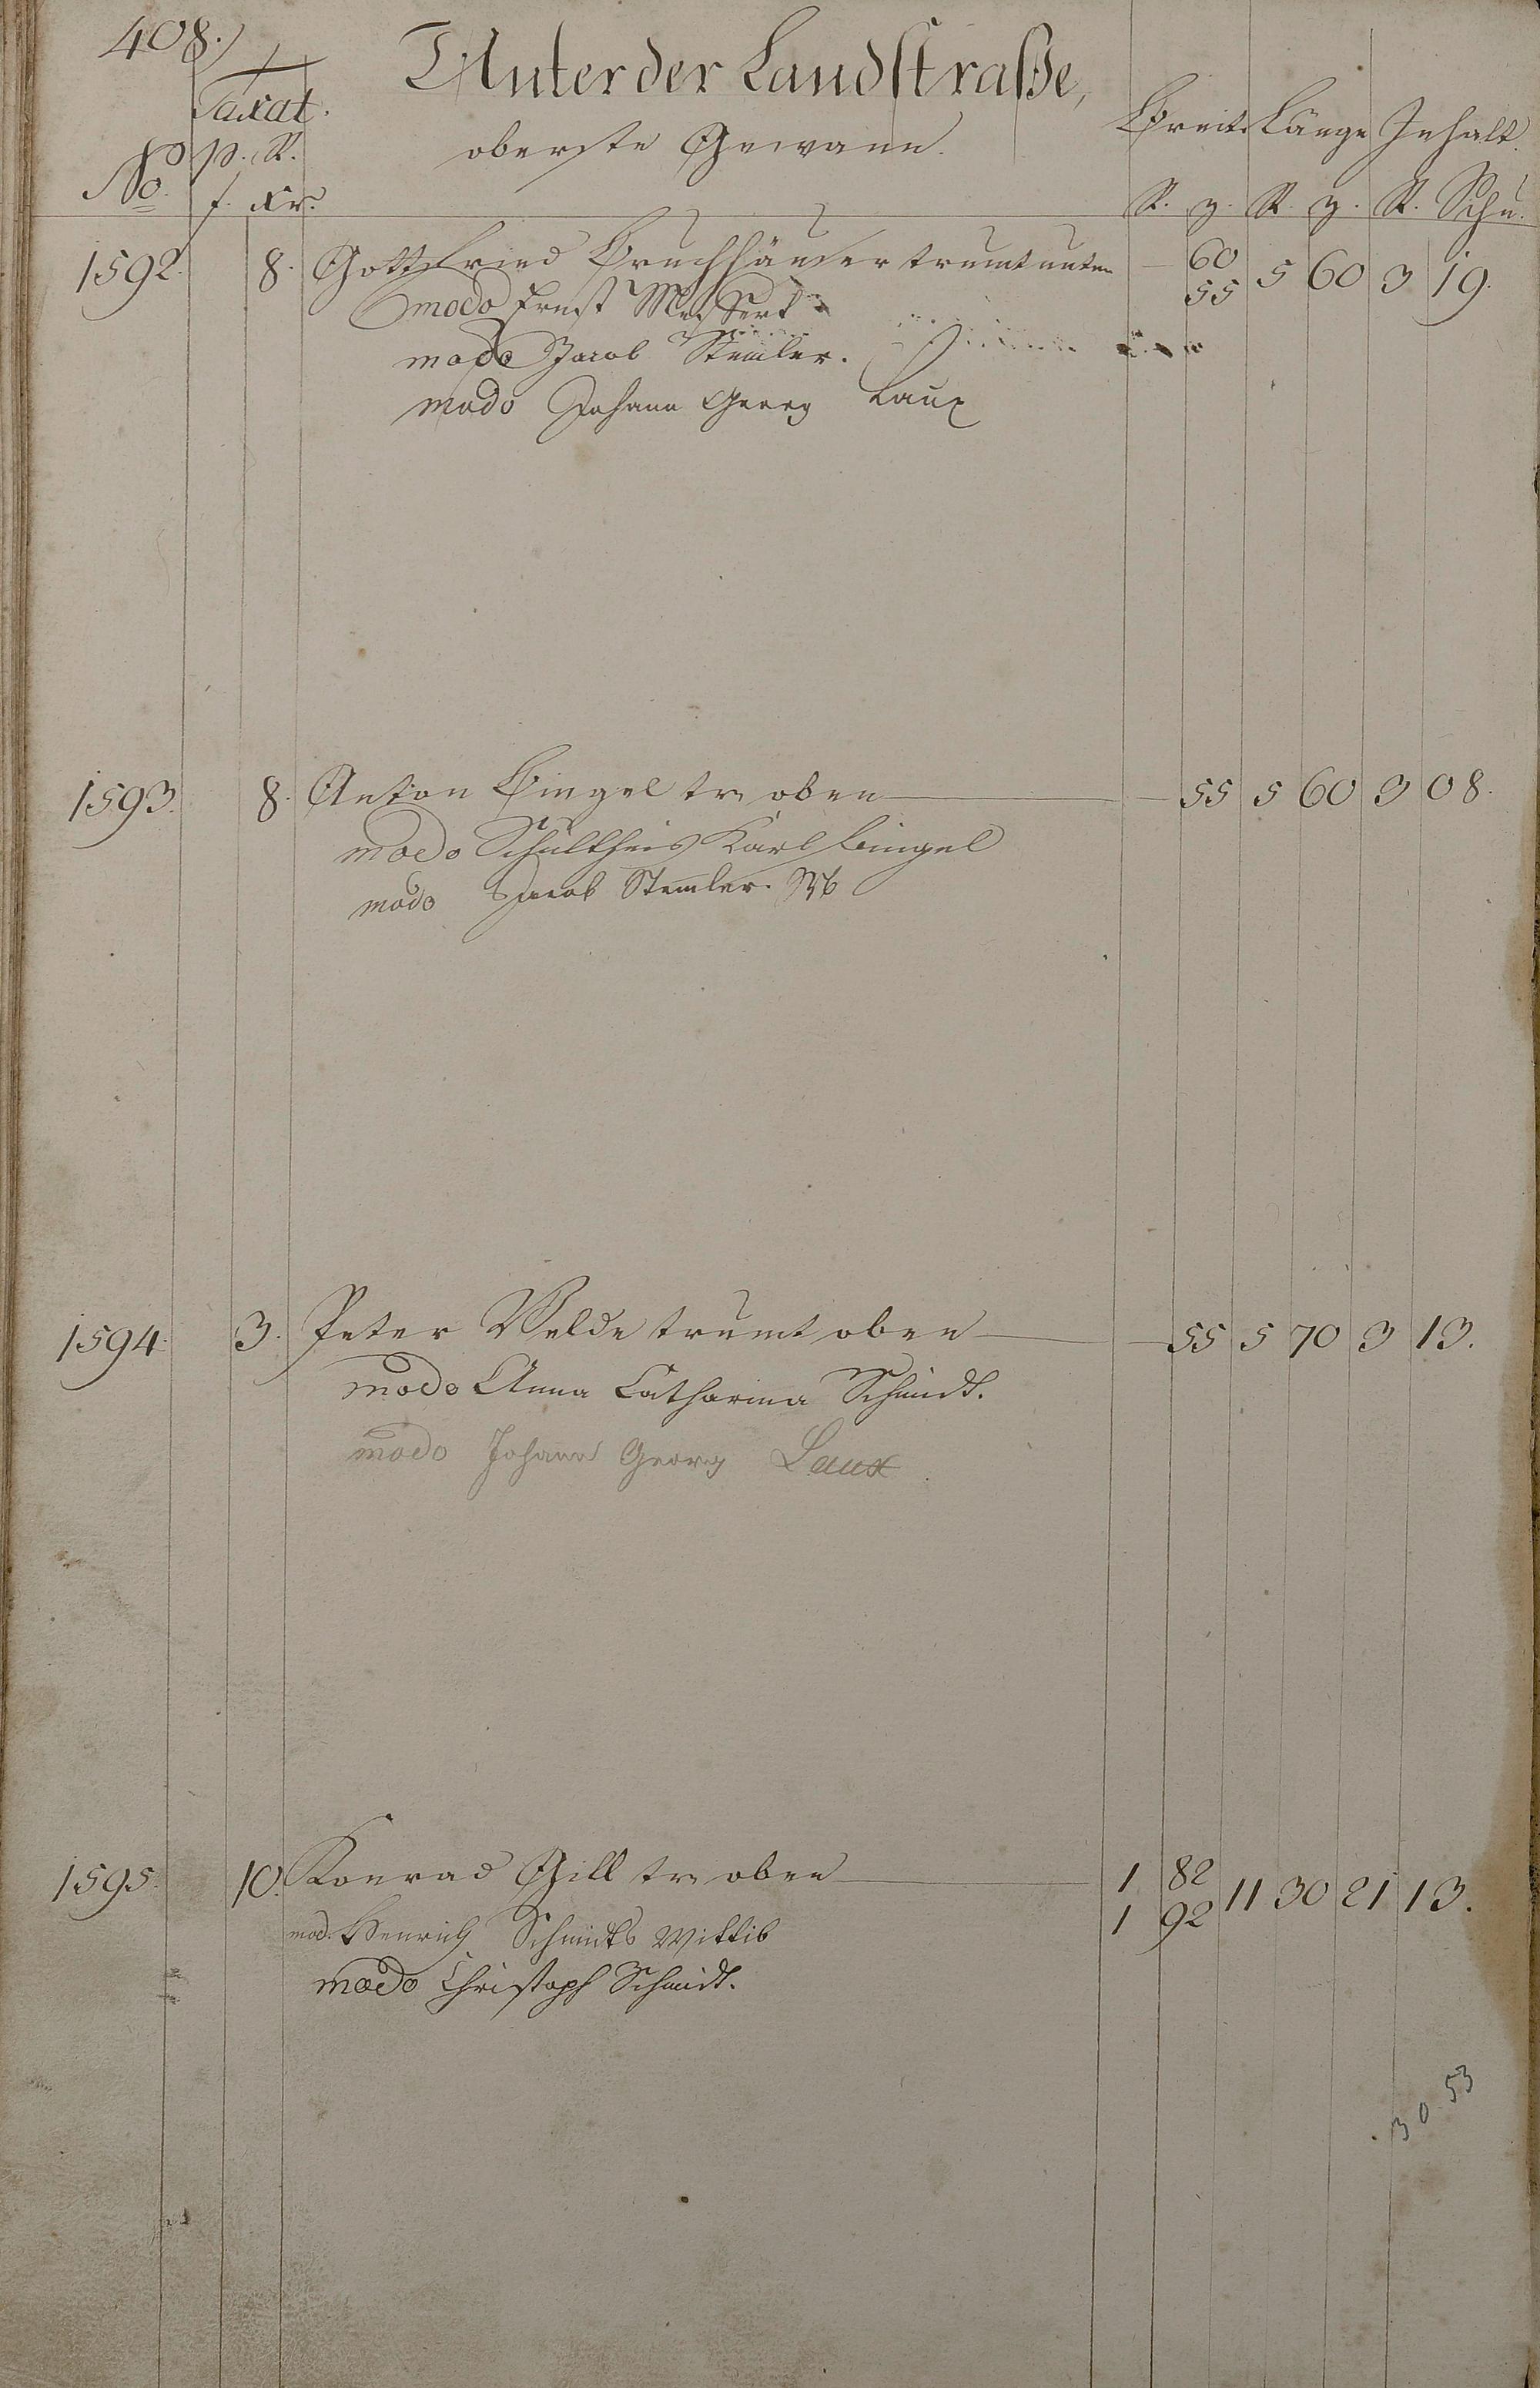 408.
Unter der Landstraße,
Taxat.
oberste Gewann.
Breite Länge Inhalt.
No. p. R.
f. Xr.
R. z. R. z. R. Schu.
1592. 8. Gottfried Bruchhäuser trumt unten — 60 5 60 3 19.
55
modo Ernst
modo Jacob Stemler.
modo Johann Georg Laux
1593. 8. Anton Bingel tr. oben — 55 5 60 3 08.
modo Schultheis Karl Bingel
modo Jacob Stemler.
1594. 3. Peter Velde trumt oben — 55 5 70 3 13.
modo Anna Catharina Schmidt.
modo Johann Georg Laux
1595. 10. Konrad Gill tr. oben — 1 82 11 30 21 13.
1 92
mod. Henrich Schmidts Wittib
modo Christoph Schmidt.
30 53